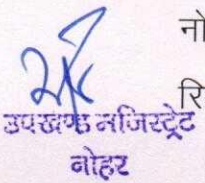 नो
रि
उपखण्ड मजिस्ट्रेट
नोहर